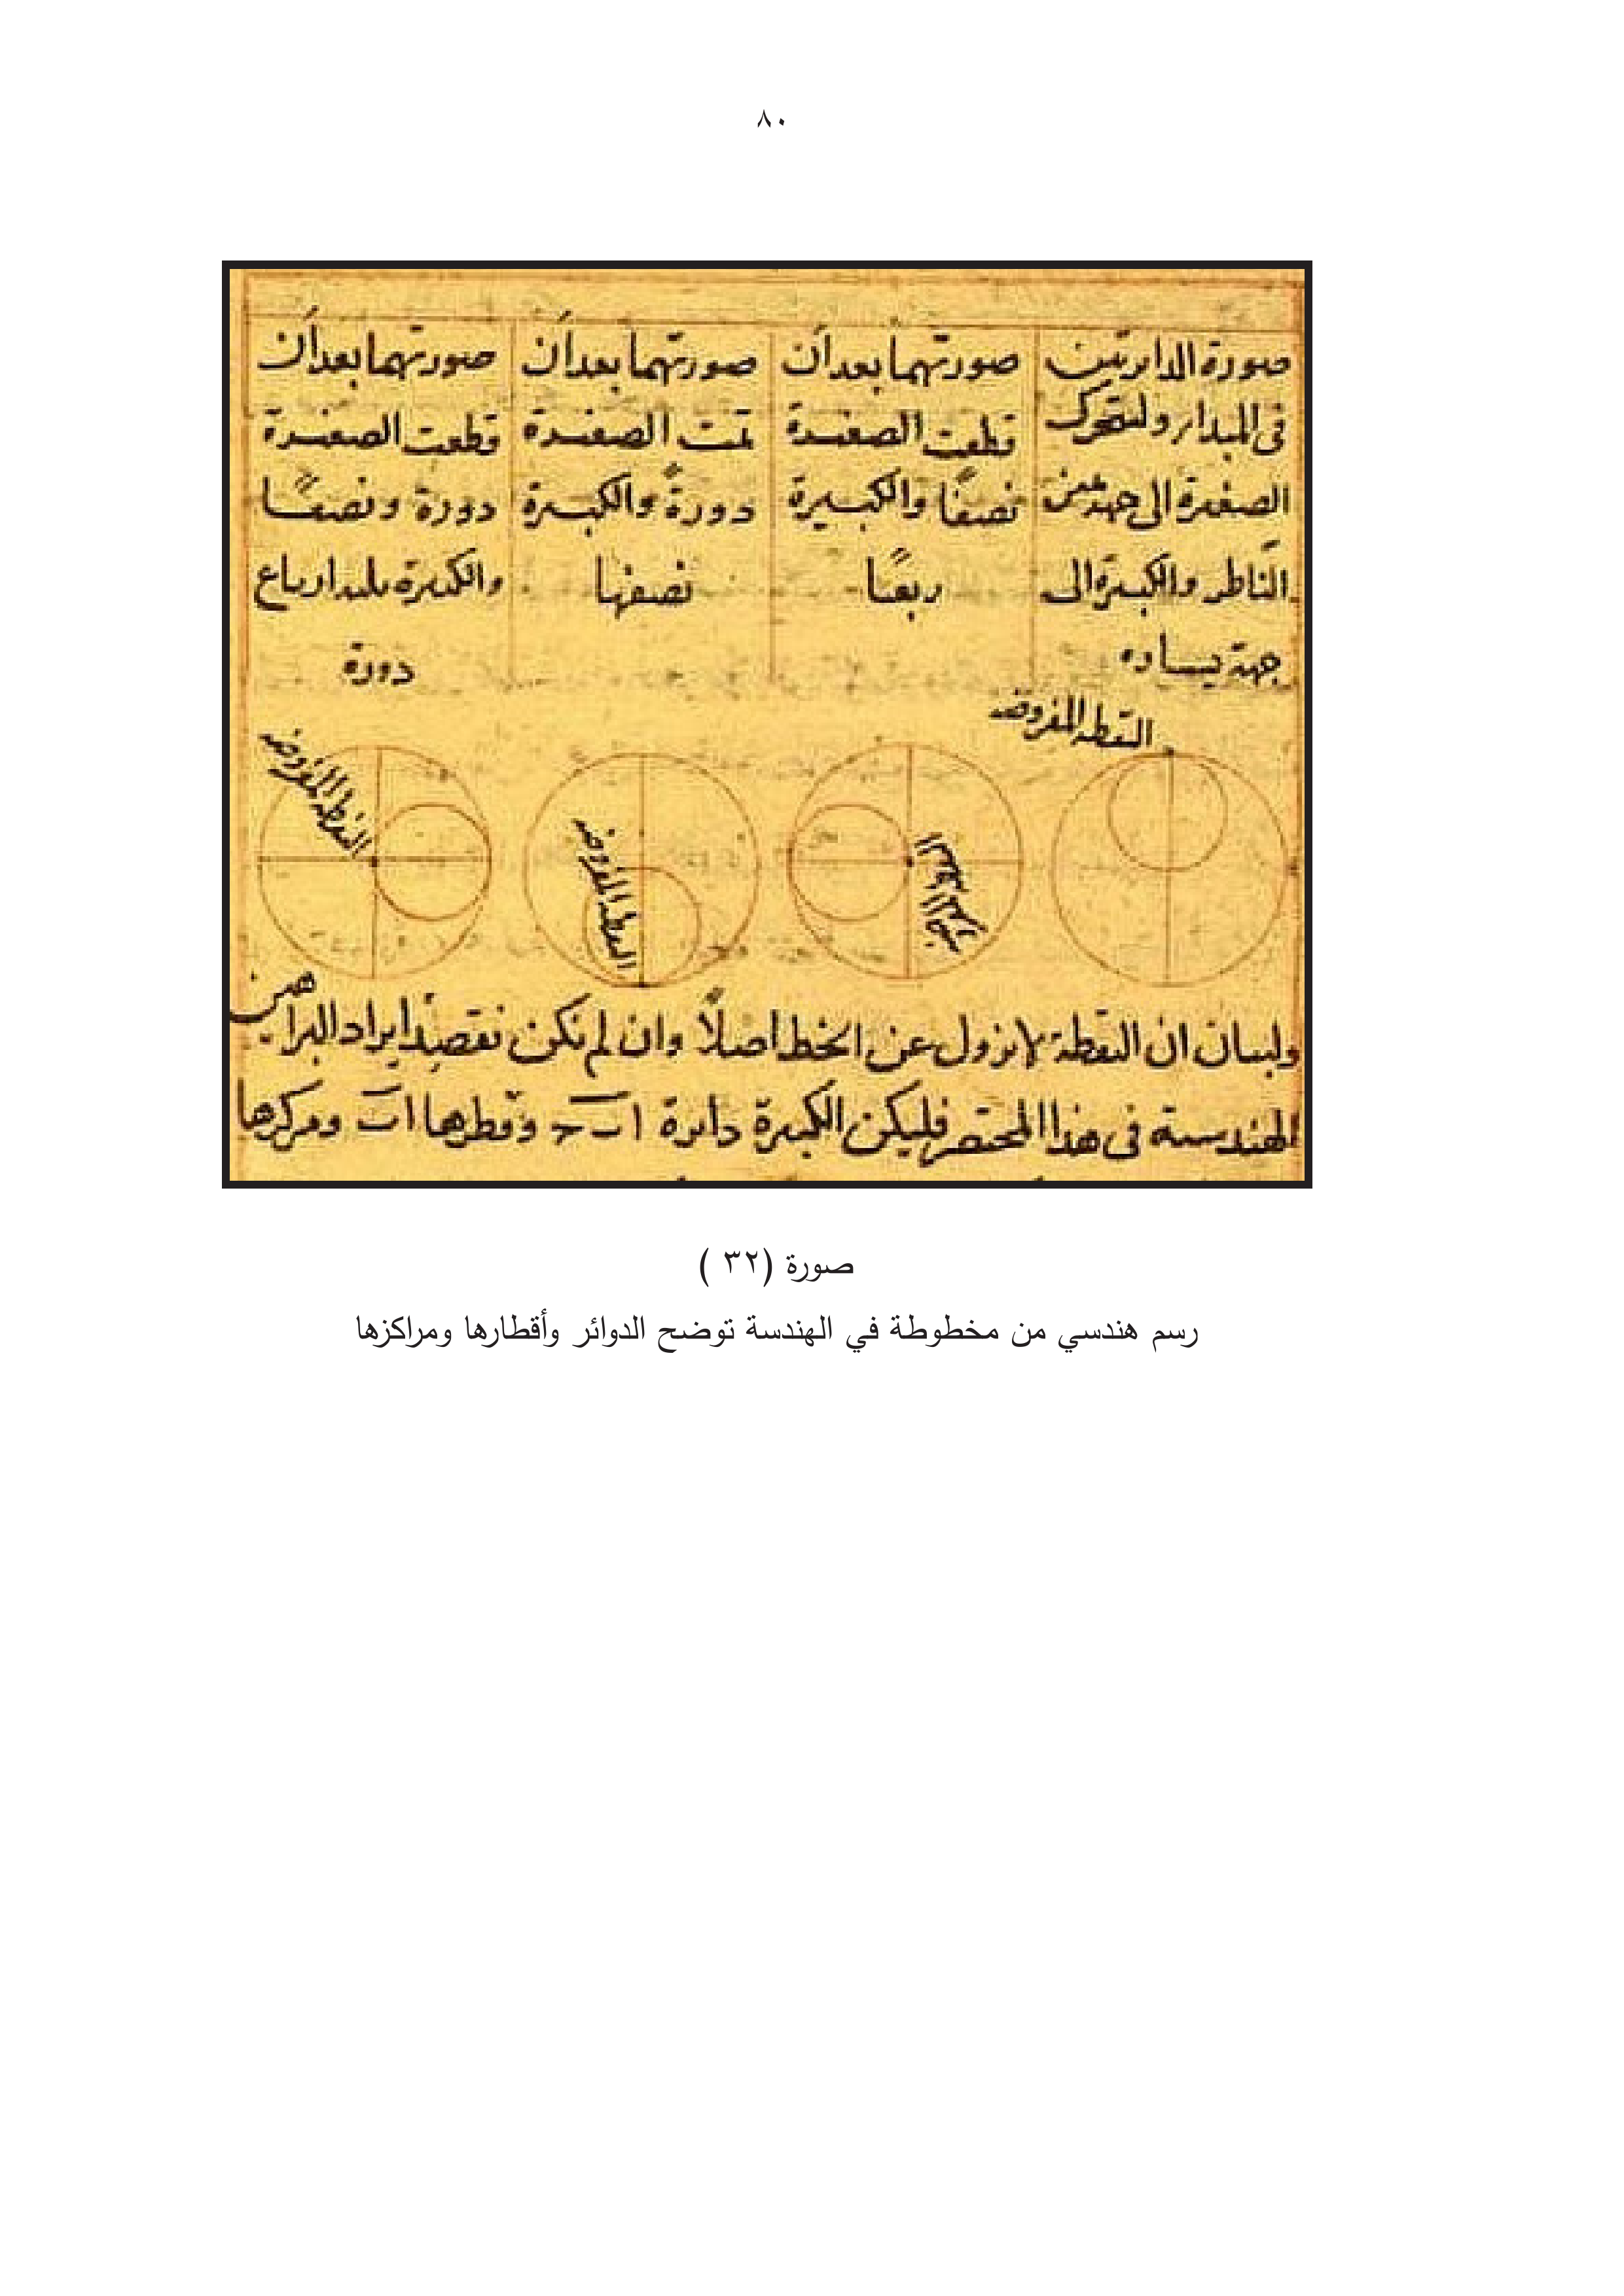 ٨٠
صورة الدايرتين
في المبدا ولتتحرك
الصغيرة الى جهة يمين
الناظر والكبيرة الى
جهة يساره
صورتهما بعد أن
قطعت الصغيرة
نصفًا والكبيرة
ربعًا
صورتهما بعد أن
تمت الصغيرة
دورةً والكبيرة
نصفها
صورتهما بعد أن
قطعت الصغيرة
دورة ونصفًا
والكبيرة ثلثة ارباع
دورة
النقطة المفروضة
النقطة المفروضة
النقطة المفروضة
النقطة المفروضة
ولبيان ان النقطة لا تزول عن الخط اصلاً وان لم نكن نقصد ايراد البراهين
الهندسية في هذا المختصر فليكن الكبيرة دائرة ا ب ج وقطرها ا ب ومركزها
صورة (٣٢ )
رسم هندسي من مخطوطة في الهندسة توضح الدوائر وأقطارها ومراكزها